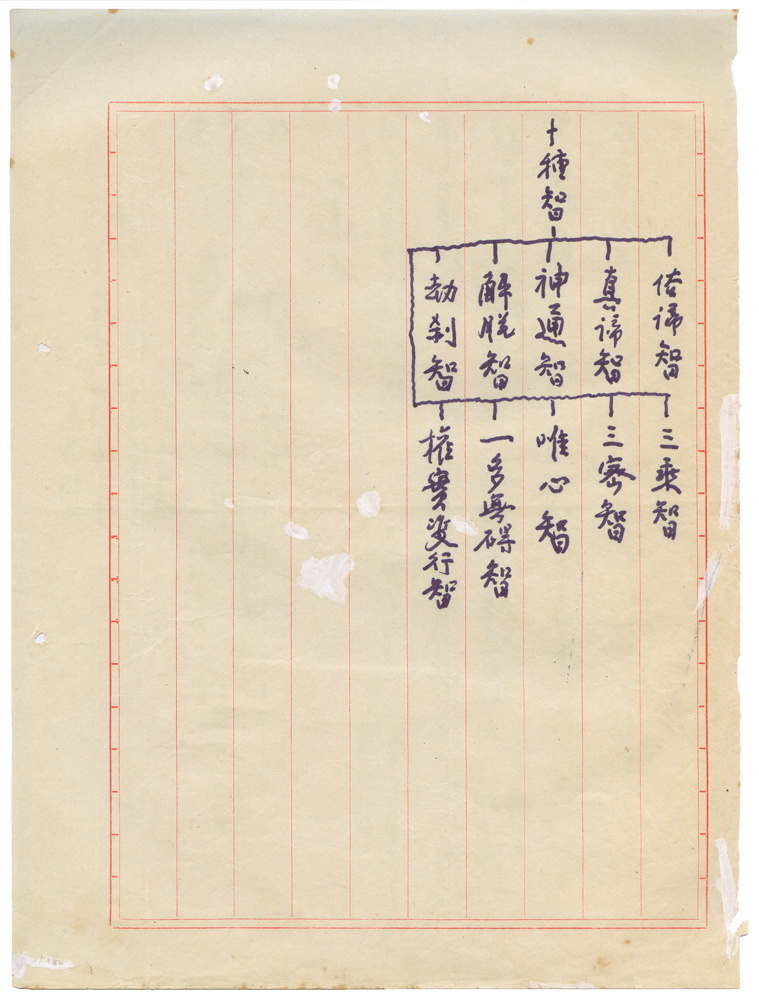 十種智
俗諦智
真諦智
神通智
解脱智
劫刹智
三乘智
三密智
唯心智
一多無碍智
權實雙行智